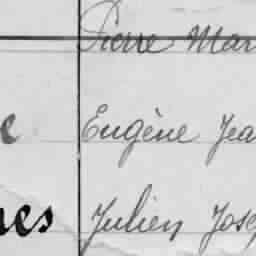 Pierre Mar
Eugène Jea
Julien Jose